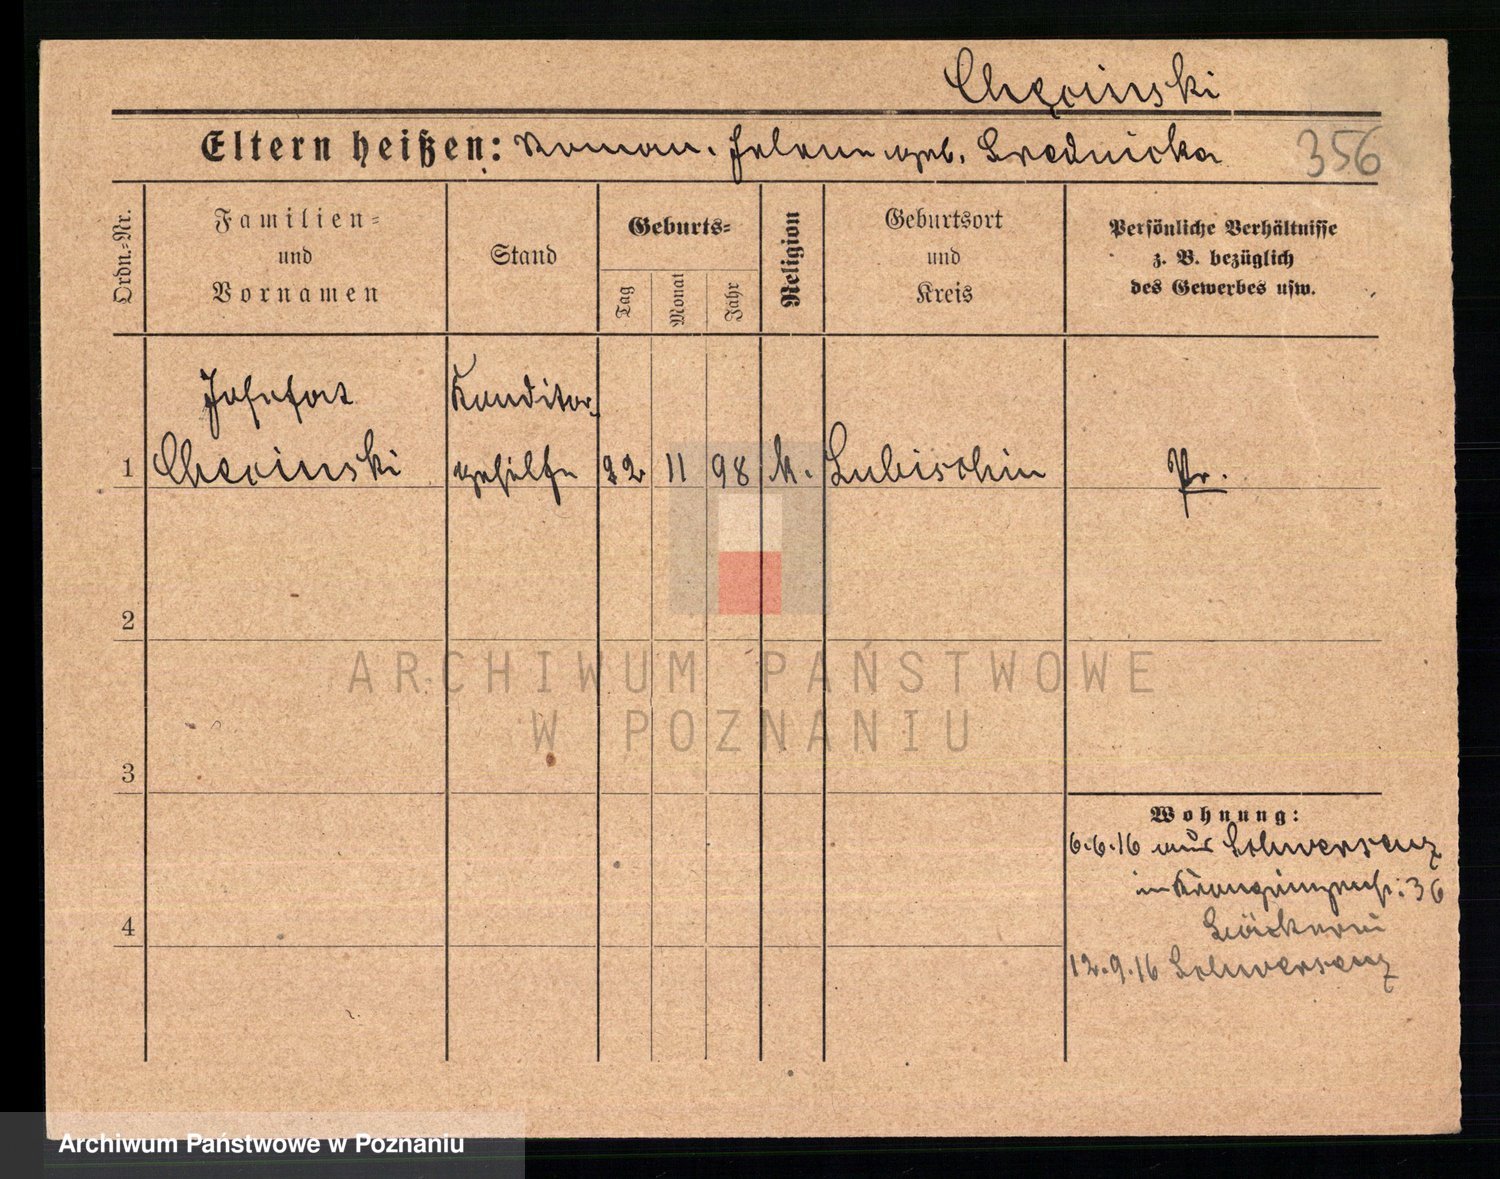 Chęcinski
Eltern heißen: Roman. Helene geb. Srednicka
356
Ordn.=Nr.
Familien=
und
Vornamen
Stand
Geburts=
Tag
Monat
Jahr
Religion
Geburtsort
und
Kreis
Persönliche Verhältnisse
z. B. bezüglich
des Gewerbes usw.
Josefat Konditor-
1 Checinski gehilfe 22 11 98 k. Lubischin Pr.
2
3
4
Wohnung:
6.6.16 aus Schwersenz
Kronprinzenstr. 36
Bäckerei
12.9.16 Schwersenz
ARCHIWUM PAŃSTWOWE
W POZNANIU
Archiwum Państwowe w Poznaniu